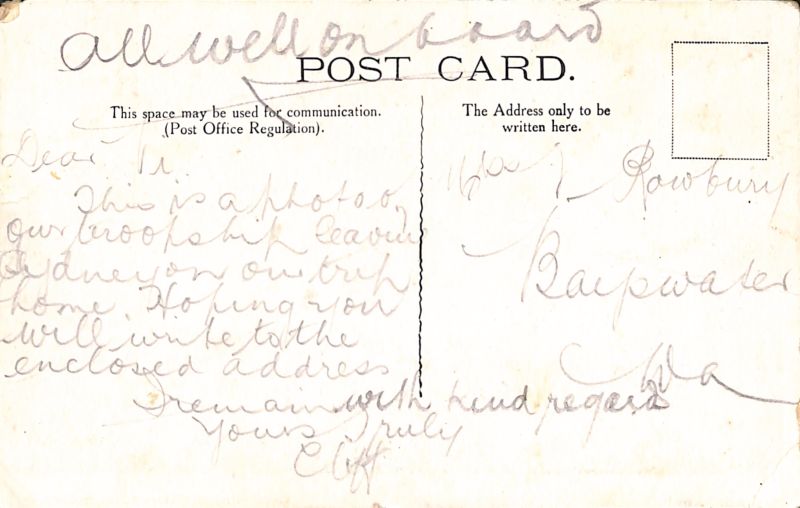 All well on board
POST CARD.
This space may be used for communication.
(Post Office Regulation).
The Address only to be
written here.
Dear
This is a photo of
our troopship leaving
Sydney on our trip
home. Hoping you
will write to the
enclosed address
I remain with kind regards
Yours Truly
Cliff
Rowbury
Bayswater
Wa